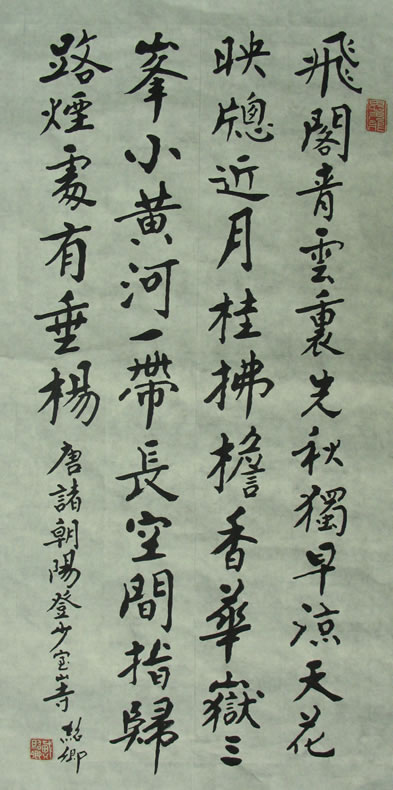 飛閣青雲裏先秋獨早涼天花
映牕近月桂拂檐香華嶽三
峯小黃河一帶長空間指歸
路煙處有垂楊
唐諸朝陽登少室山寺 紹卿